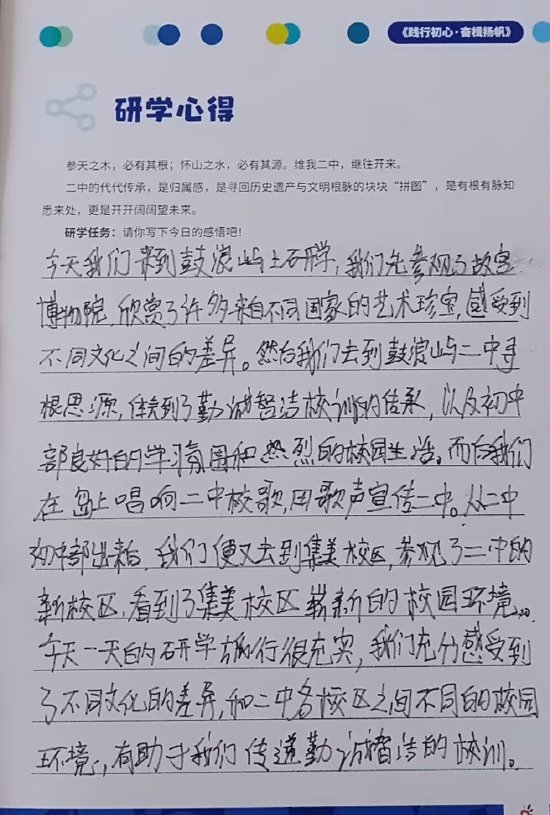 《践行初心·奋楫扬帆》
研学心得
参天之木，必有其根；怀山之水，必有其源。维我二中，继往开来。
二中的代代传承，是归属感，是寻回历史遗产与文明根脉的块块“拼图”，是有根有脉知
悉来处，更是开开阔阔望未来。
研学任务：请你写下今日的感悟吧！
今天我们来到鼓浪屿上研学，我们先参观了故宫
博物院，欣赏了许多来自不同国家的艺术珍宝，感受到
不同文化之间的差异。然后我们去到鼓浪屿二中寻
根思源，体会到了勤诚智洁校训的传承，以及初中
部良好的学习氛围和热烈的校园生活。而后我们
在岛上唱响二中校歌，用歌声宣传二中。从二中
初中部出来后，我们便又去到集美校区，参观了二中的
新校区，看到了集美校区崭新的校园环境。
今天一天的研学旅行很充实，我们充分感受到
了不同文化的差异，和二中各校区之间不同的校园
环境，有助于我们传递勤诚智洁的校训。